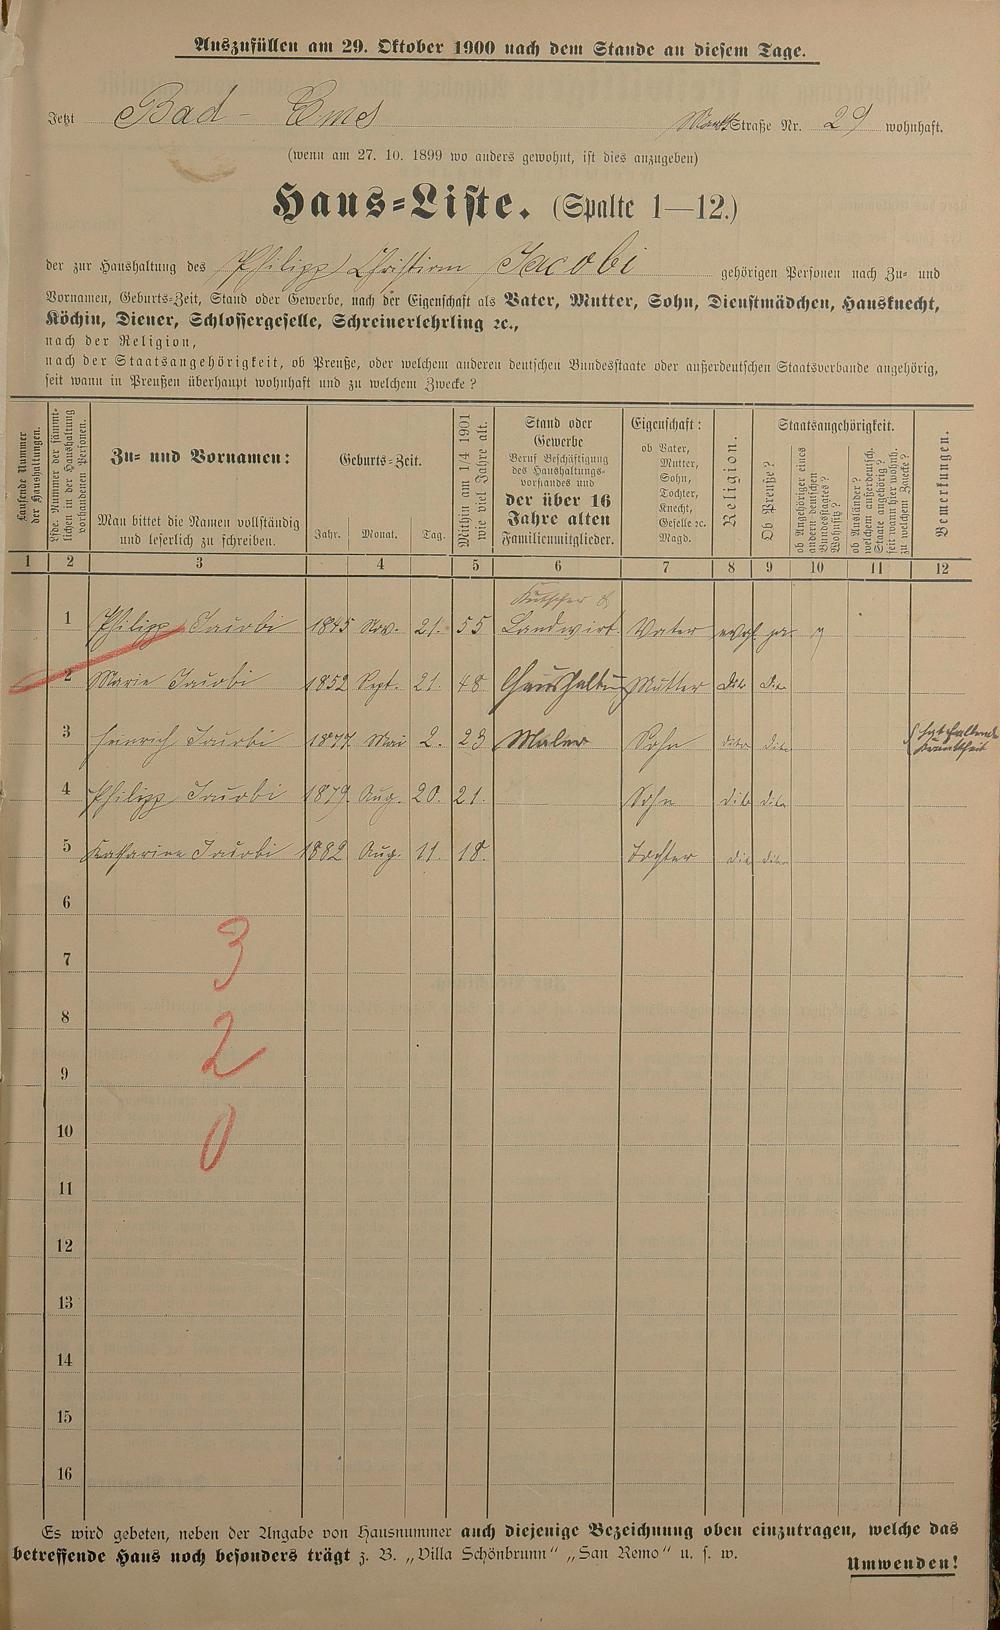 Auszufüllen am 29. Oktober 1900 nach dem Stande an diesem Tage.
Jetzt Bad-Ems Markt Straße Nr. 29 wohnhaft.
(wenn am 27. 10. 1899 wo anders gewohnt, ist dies anzugeben)
Haus=Liste. (Spalte 1—12.)
der zur Haushaltung des Philipp Christian Jacobi gehörigen Personen nach Zu= und
Vornamen, Geburts=Zeit, Stand oder Gewerbe, nach der Eigenschaft als Vater, Mutter, Sohn, Dienstmädchen, Hausknecht,
Köchin, Diener, Schlossergeselle, Schreinerlehrling ꝛc.,
nach der Religion,
nach der Staatsangehörigkeit, ob Preuße, oder welchem anderen deutschen Bundesstaate oder außerdeutschen Staatsverbande angehörig,
seit wann in Preußen überhaupt wohnhaft und zu welchem Zwecke?
Laufende Nummer
der Haushaltungen.
Lfde. Nummer der sämmt-
lichen in der Haushaltung
vorhandenen Personen.
Zu= und Vornamen:
Man bittet die Namen vollständig
und leserlich zu schreiben.
Geburts=Zeit.
Jahr. Monat. Tag.
Mithin am 1/4 1901
wie viel Jahre alt.
Stand oder
Gewerbe
Beruf Beschäftigung
des Haushaltungs-
vorstandes und
der über 16
Jahre alten
Familienmitglieder.
Eigenschaft:
ob Vater,
Mutter,
Sohn,
Tochter,
Knecht,
Geselle ꝛc.
Magd.
Religion.
Staatsangehörigkeit.
Ob Preuße?
ob Angehöriger eines
andern deutschen
Bundesstaates?
Wohnsitz?
ob Ausländer?
welchem außerdeutsch.
Staate angehörig?
seit wann hier wohnh.
zu welchem Zwecke?
Bemerkungen.
1 2 3 4 5 6 7 8 9 10 11 12
Kutscher &
1 Philipp Jacobi 1845 Nov. 21. 55 Landwirt Vater evgl. ja
2 Marie Jacobi 1852 Sept. 21. 48 Haushaltung Mutter dito dito
3 Heinrich Jacobi 1877 Mai 2. 23 Maler Sohn dito dito hat fallende
Krankheit
4 Philipp Jacobi 1879 Aug. 20. 21. Sohn dito dito
5 Katharine Jacobi 1882 Aug. 11. 18. Tochter dito dito
6
3
7
8
2
9
10
0
11
12
13
14
15
16
Es wird gebeten, neben der Angabe von Hausnummer auch diejenige Bezeichnung oben einzutragen, welche das
betreffende Haus noch besonders trägt z. B. „Villa Schönbrunn“ „San Remo“ u. s. w.
Umwenden!